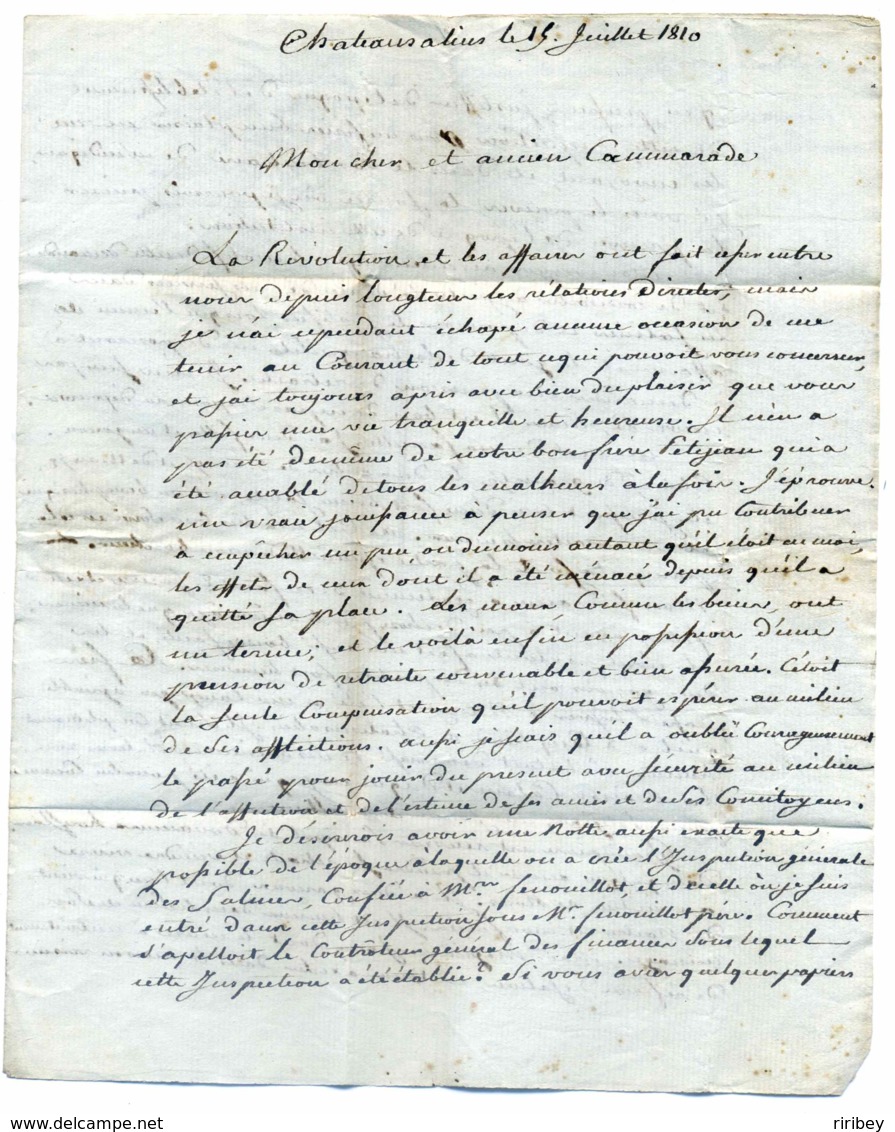 Chateausalins le 15. Juillet 1810
Mon cher et ancien Cammarade
La Révolution et les affaires ont fait cesser entre
nous depuis longtems les rélations directes; mais
je n'ai cependant échapé aucune occasion de me
tenir au Courant de tout ce qui pouvoit vous concerner,
et j'ai toujours apris avec bien du plaisir que vous
passiez une vie tranquille et heureuse. Il n'en a
pas été de même de notre bon frère Petijean qui a
été accablé de tous les malheurs à la fois. J'éprouve
une vraie jouissance à penser que j'ai pu Contribuer
a empêcher un peu ou du moins autant qu'il étoit au moi,
les effets de ceux dont il a été ménacé depuis qu'il a
quitté sa place. Les maux, Comme les biens, ont
un terme; et le voilà enfin en possession d'une
pension de retraite convenable et bien assurée. C'étoit
la seule Compensation qu'il pouvoit espérer au milieu
de ses afflictions. aussi je sais qu'il a oublié Courageusement
le passé pour jouir du present avec sécurité au milieu
de l'affection et de l'estime de ses amis et de ses Concitoyens.
Je désirerois avoir une Notte aussi exacte que
possible de l'époque à laquelle on a crée l'Inspection générale
des Salines, Confiée à Mr. fenouillot, et de celle où je suis
entré dans cette Inspection sous Mr. fenouillot père. Comment
s'apelloit le Contrôleur général des finances sous lequel
cette Inspection a été établie? Si vous aviez quelques papiers
ririBey